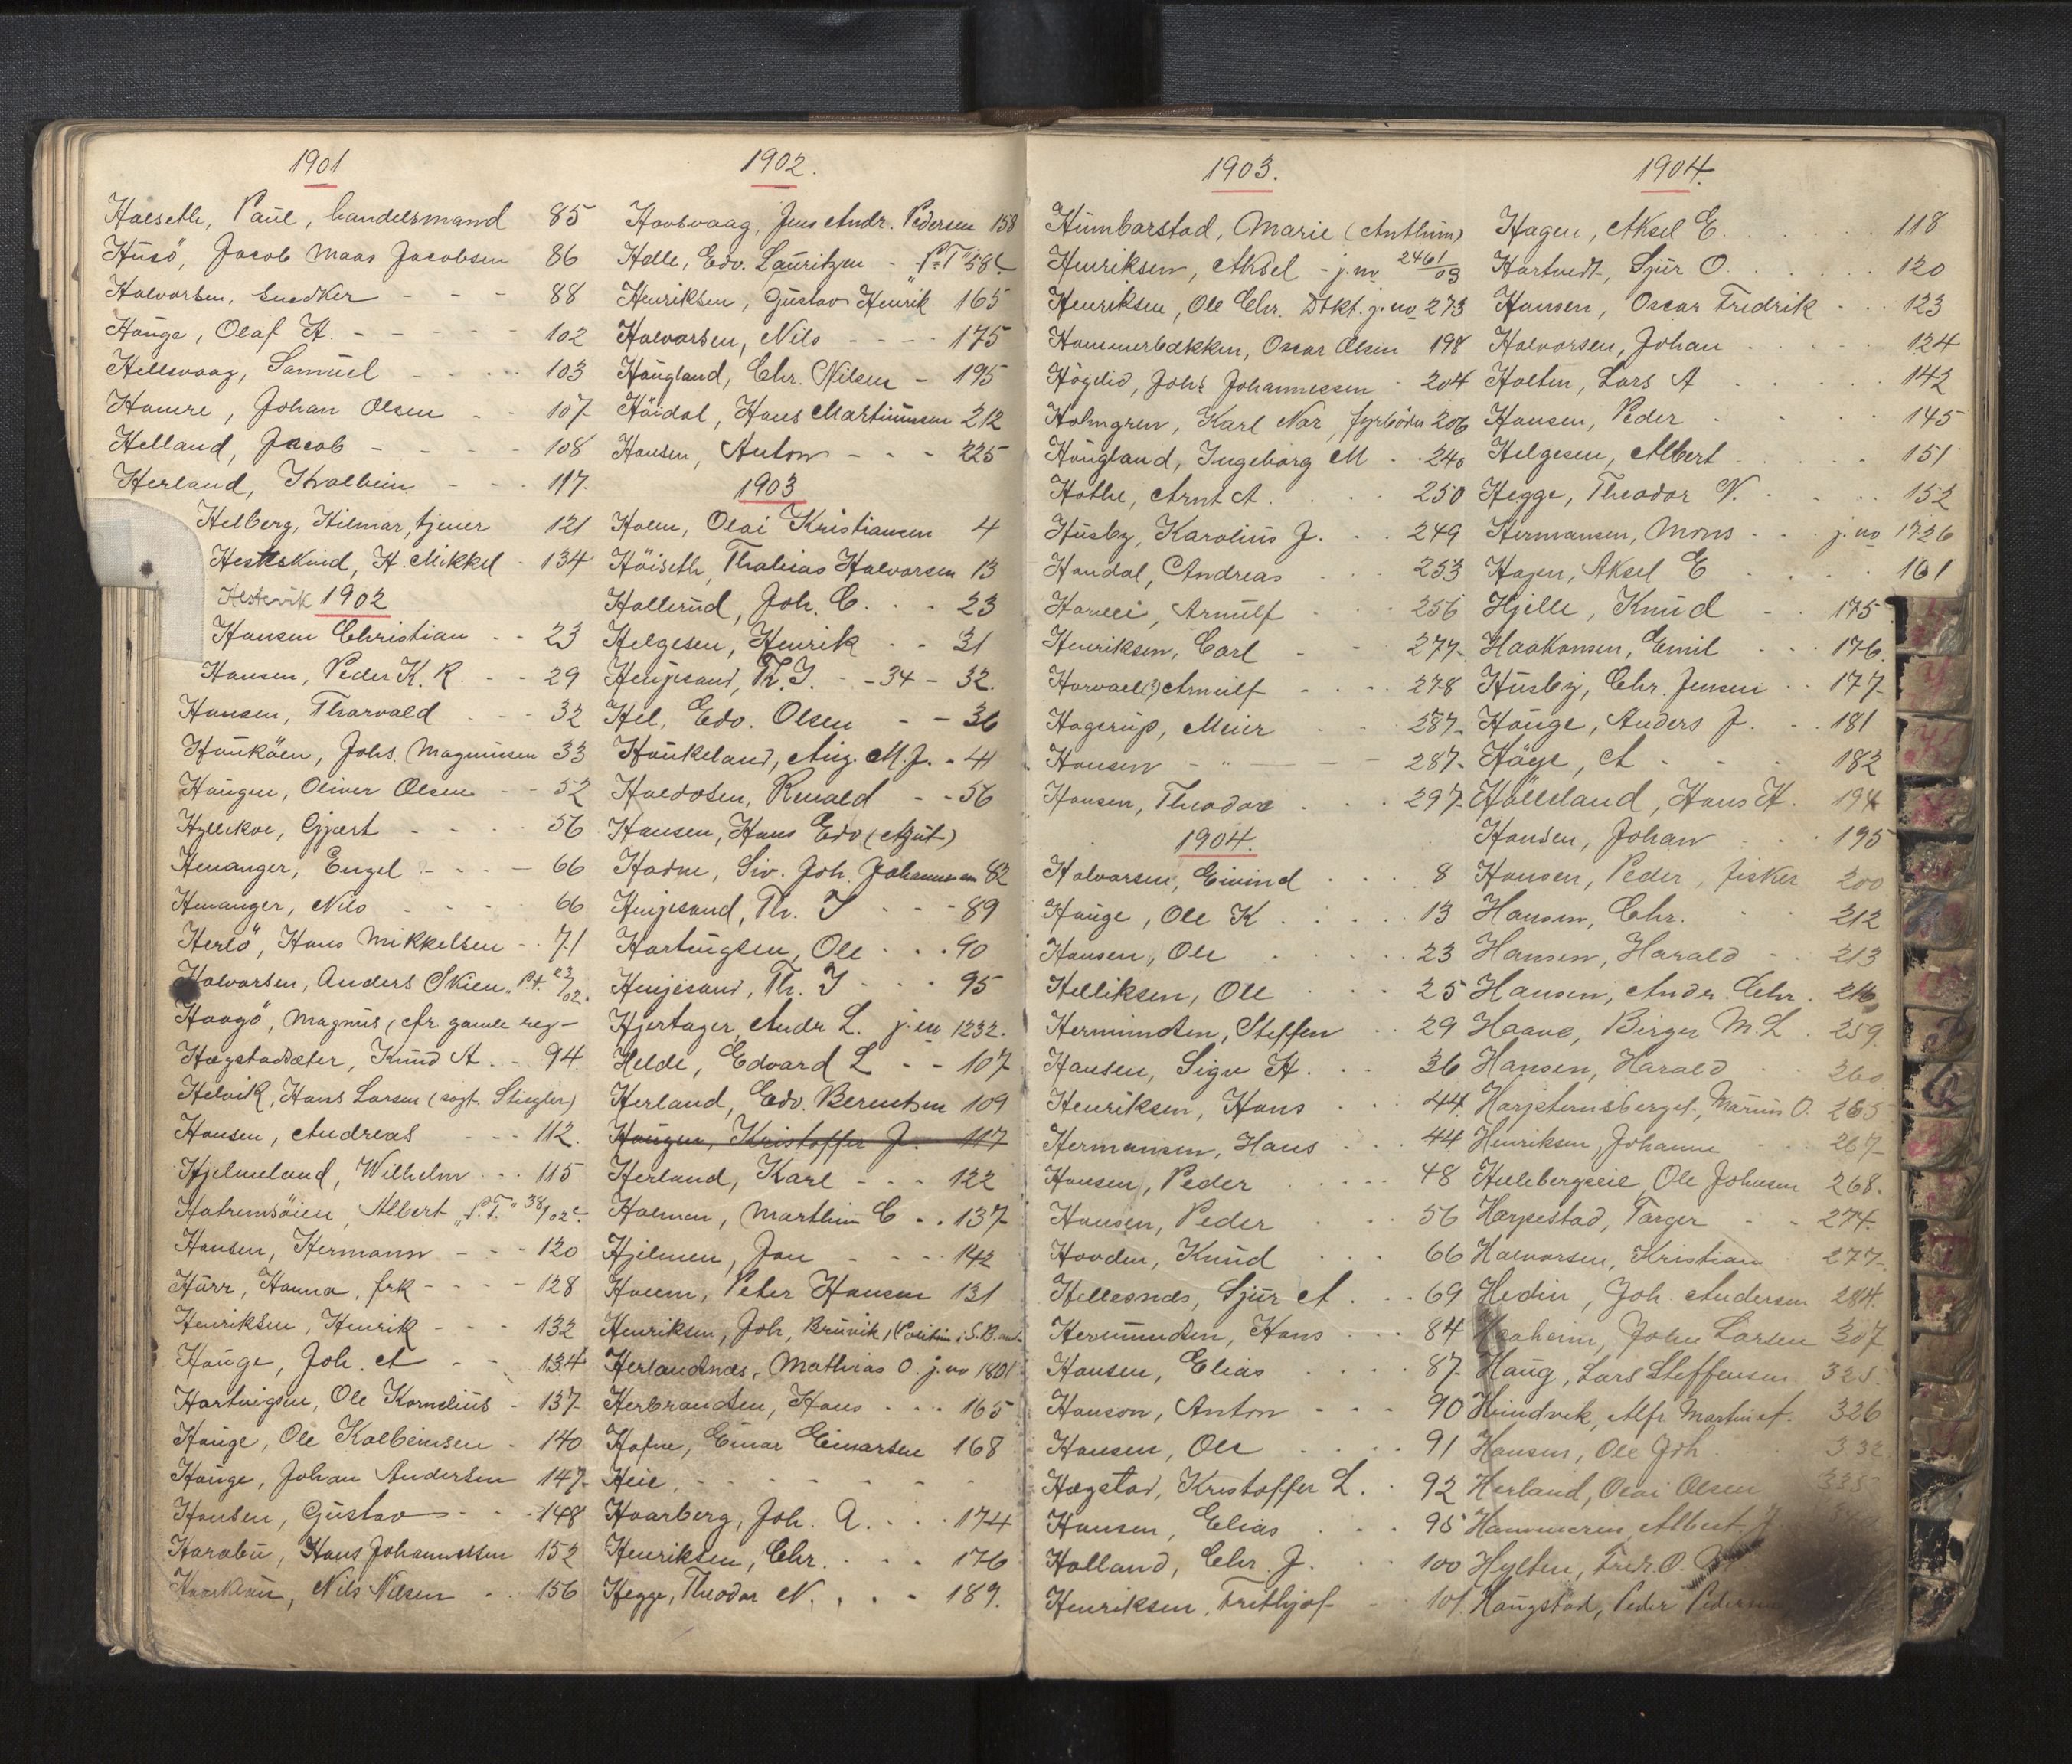 1901
Halseth, Paul, handelsmand 85
Husö, Jacob Maas Jacobsen 86
Halvorsen, Snedker - - - 88
Hauge, Olaf H. - - - - - 102
Hellevaag, Samuel - - - - 103
Hamre, Johan Olsen - - 107
Helland, Jacob - - - - 108
Herland, Kvalbein - - - 117.
Helberg, Hilmar, tjener 121
Hestskind, H. Mikkel - 134
Hestevik 1902
Hansen Christian - - 23
Hansen, Peder K. R. - - 29
Hansen, Thorvald - - - 32
Haukåen, Johs. Magnusen 33
Haugen, Oliver Olsen - - 52
Hyllekve, Gjert - - - - 56
Henanger, Engel - - - - 66
Henanger, Nils - - - - 66
Herlö, Hans Mikkelsen - - 71
Halvorsen, Anders Skien "P.t. 23/02.
Haagö, Magnus (cfr gamle reg-
Hægstadsæter, Knud A. - - 94.
Helvik, Hans Larsen (sagt. Stiegler)
Hansen, Andreas - - - 112.
Hjelmeland, Wilhelm - - - 115
Hatremsöien, Albert "P.T." 38/02.
Hansen, Hermann - - - 120
Hårr, Hanna, frk - - - - 128
Henriksen, Henrik - - - 132
Hauge, Joh. A - - 134
Hartvigsen, Ole Kornelius - 137-
Hauge, Ole Kolbeinsen - 140
Hauge, Johan Andersen 147-
Hansen, Gustav - - - 148
Harabu, Hans Johannessen 152
Nils Nilsen - - 156
1902.
Havsvaag, Jens Andr. Pedersen 158
Helle, Edv. Lauritzen - "P.T." 58
Henriksen, Gustav Henrik 165
Halvorsen, Nils - - - - 175
Haugland, Chr. Nilsen - 195
Höidal, Hans Martinussen 212
Hansen, Anton - - - 225
1903
Holm, Olai Kristiansen 4
Höiseth, Thobias Halvorsen 13
Hallerud, Joh. C. - - - 23
Helgesen, Henrik - - - 31
Henjesand, Th. J. - - 34 - 32.
Hil, Edv. Olsen - - 36
Haukeland, Aug. M. J. - 41
Haldosen, Renald - - 56
Hansen, Hans Edv (Agut)
Hadne, Siv. Joh. Johannesen 82
Henjesand, Th. J - - - 89
Hartvigsen, Ole - - - 90
Henjesand, Th. J - - - 95
Hjertager, Andr L. j. no 1232.
Helde, Edvard L - - 107-
Herland, Edv. Berentsen 109
Haugen, Kristoffer J. 117
Herland, Karl - - - 122
Holmen, Marthin C - - 137-
Hjelmen, Jon - - - - 142
Holm, Peter Hansen 131
Henriksen, Joh, Bruvik,
Herlandsnæs, Mathias O. j. no 1801
Herbrandsen, Hans - - - 165
Hafne, Einar Einarsen 168
Heie - - - - - - -
Haarberg, Joh. A. - - - 174
Henriksen, Chr. - - - - 176
Hegge, Theodor N. - - - 189.
1903.
Humbarstad, Marie (Anthum)
Henriksen, Aksel - j. no 2461/03
Henriksen, Ole Chr. Dtkt. j. no 273
Hammerbækken, Oscar Olsen 198
Högelid, Johs Johannessen - 204
Holmgren, Karl Nar, fyrböder 206
Haugland, Ingeborg M - - 240
Hothe, Arnt A. - - - 250
Husby, Karolius J. - - 249
Handal, Andreas - - - 253
Harvei, Arnulf - - - 256
Henriksen, Carl - - - 277-
Harvael(?) Arnulf - - - - 278
Hagerup, Meier - - - 287-
Hansen - " - - - - - 287-
Hansen, Theodor - - - 297-
1904.
Halvorsen, Eivind - - - 8
Hauge, Ole K - - - - - 13
Hansen, Ole - - - - - 23
Helliksen, Ole - - - - 25
Hermundsen, Steffen - - 29
Hansen, Sigv H. - - - 36
Henriksen, Hans - - - 44
Hermansen, Hans - - - 44
Hansen, Peder - - - - - 48
Hansen, Peder - - - 56
Hovden, Knud - - - 66
Hellesnæs, Sjur A - - - 69
Hermundsen, Hans - - - 84
Hansen, Elias - - - - 87-
Hanson, Anton - - - 90
Hansen, Ole - - - - 91
Hægstad, Kristoffer L. - - 92
Hansen, Elias - - - 95
Holland, Chr. J. - - - 100
Henriksen, Frithjof - - 101.
1904.
Hagen, Aksel E. - - - - - 118
Hartvedt, Sjur O. - - - - - 120
Hansen, Oscar Fredrik - - - 123
Halvorsen, Johan - - - - - 124
Holten, Lars A - - - - - 142
Hansen, Peder - - - - 145
Helgesen, Albert - - - - - 151
Hegge, Theodor N. - - - - 152
Hermansen, Mons - - - j. no 1726
Hagen, Aksel E - - - - - 161
Hjelle, Knud - - - 175
Haakonsen, Emil - - - 176.
Husby, Chr. Jensen - - 177-
Hauge, Anders J. - - 181
Håge, A - - - - 182
Hålleland, Hans H. 194
Hansen, Johan - - - 195
Hansen, Peder, fisker 200
Hansen, Chr. - - 212
Hansen, Harald - - 213
Hansen, Andr. Chr. - 216
Haave, Birger M. L. 259.
Hansen, Harald - - 260
Marius O. 265
Henriksen, Johanne - - 267-
Ole Johnsen 268.
Harpestad, Torger - - 274-
Halvorsen, Kristian 277-
Hedin, Joh. Andersen 284.
John Larsen 307
Haug, Lars Steffensen 325.
Heindvik, Alfr Martin A. 326
Hansen, Ole Joh. 332
Herland, Olai Olsen 335
Albert J
Hylten, Fredr. O.
Haugstad, Peder Pedersen